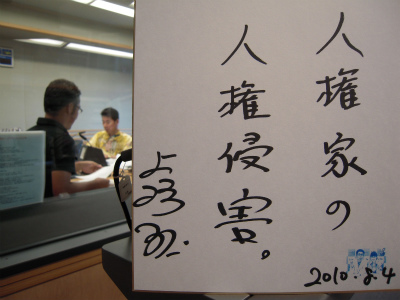 人権家の
人権侵害。
2010.8.4